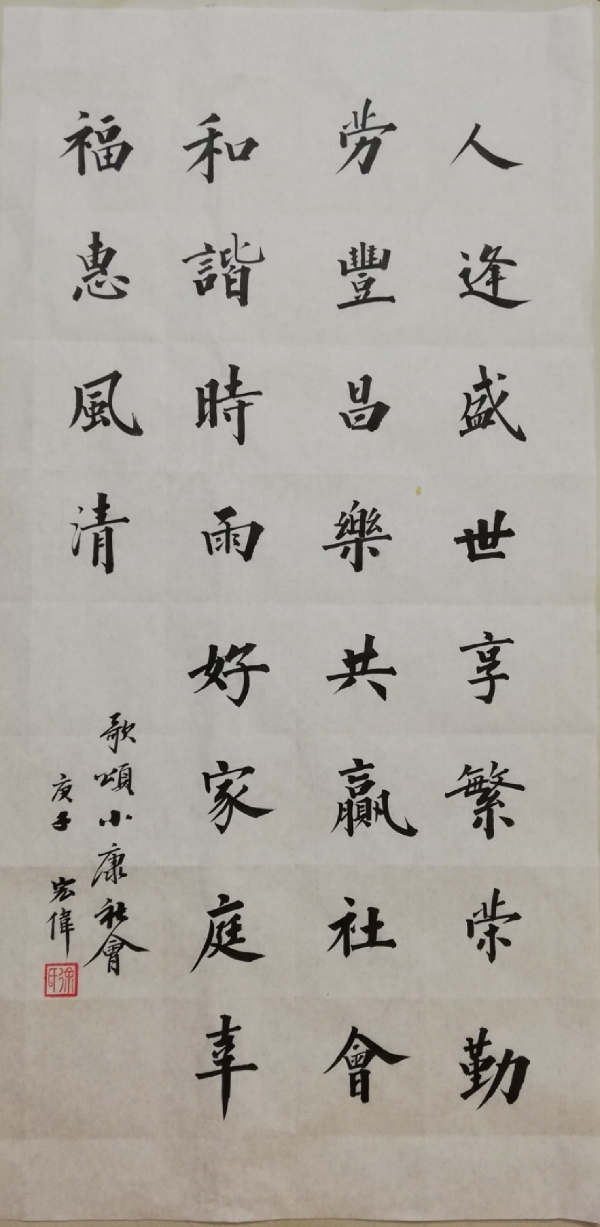 人逢盛世享繁荣勤
劳豐昌樂共贏社會
和諧時雨好家庭幸
福惠風清
歌頌小康社會
庚子 宏偉
徐氏